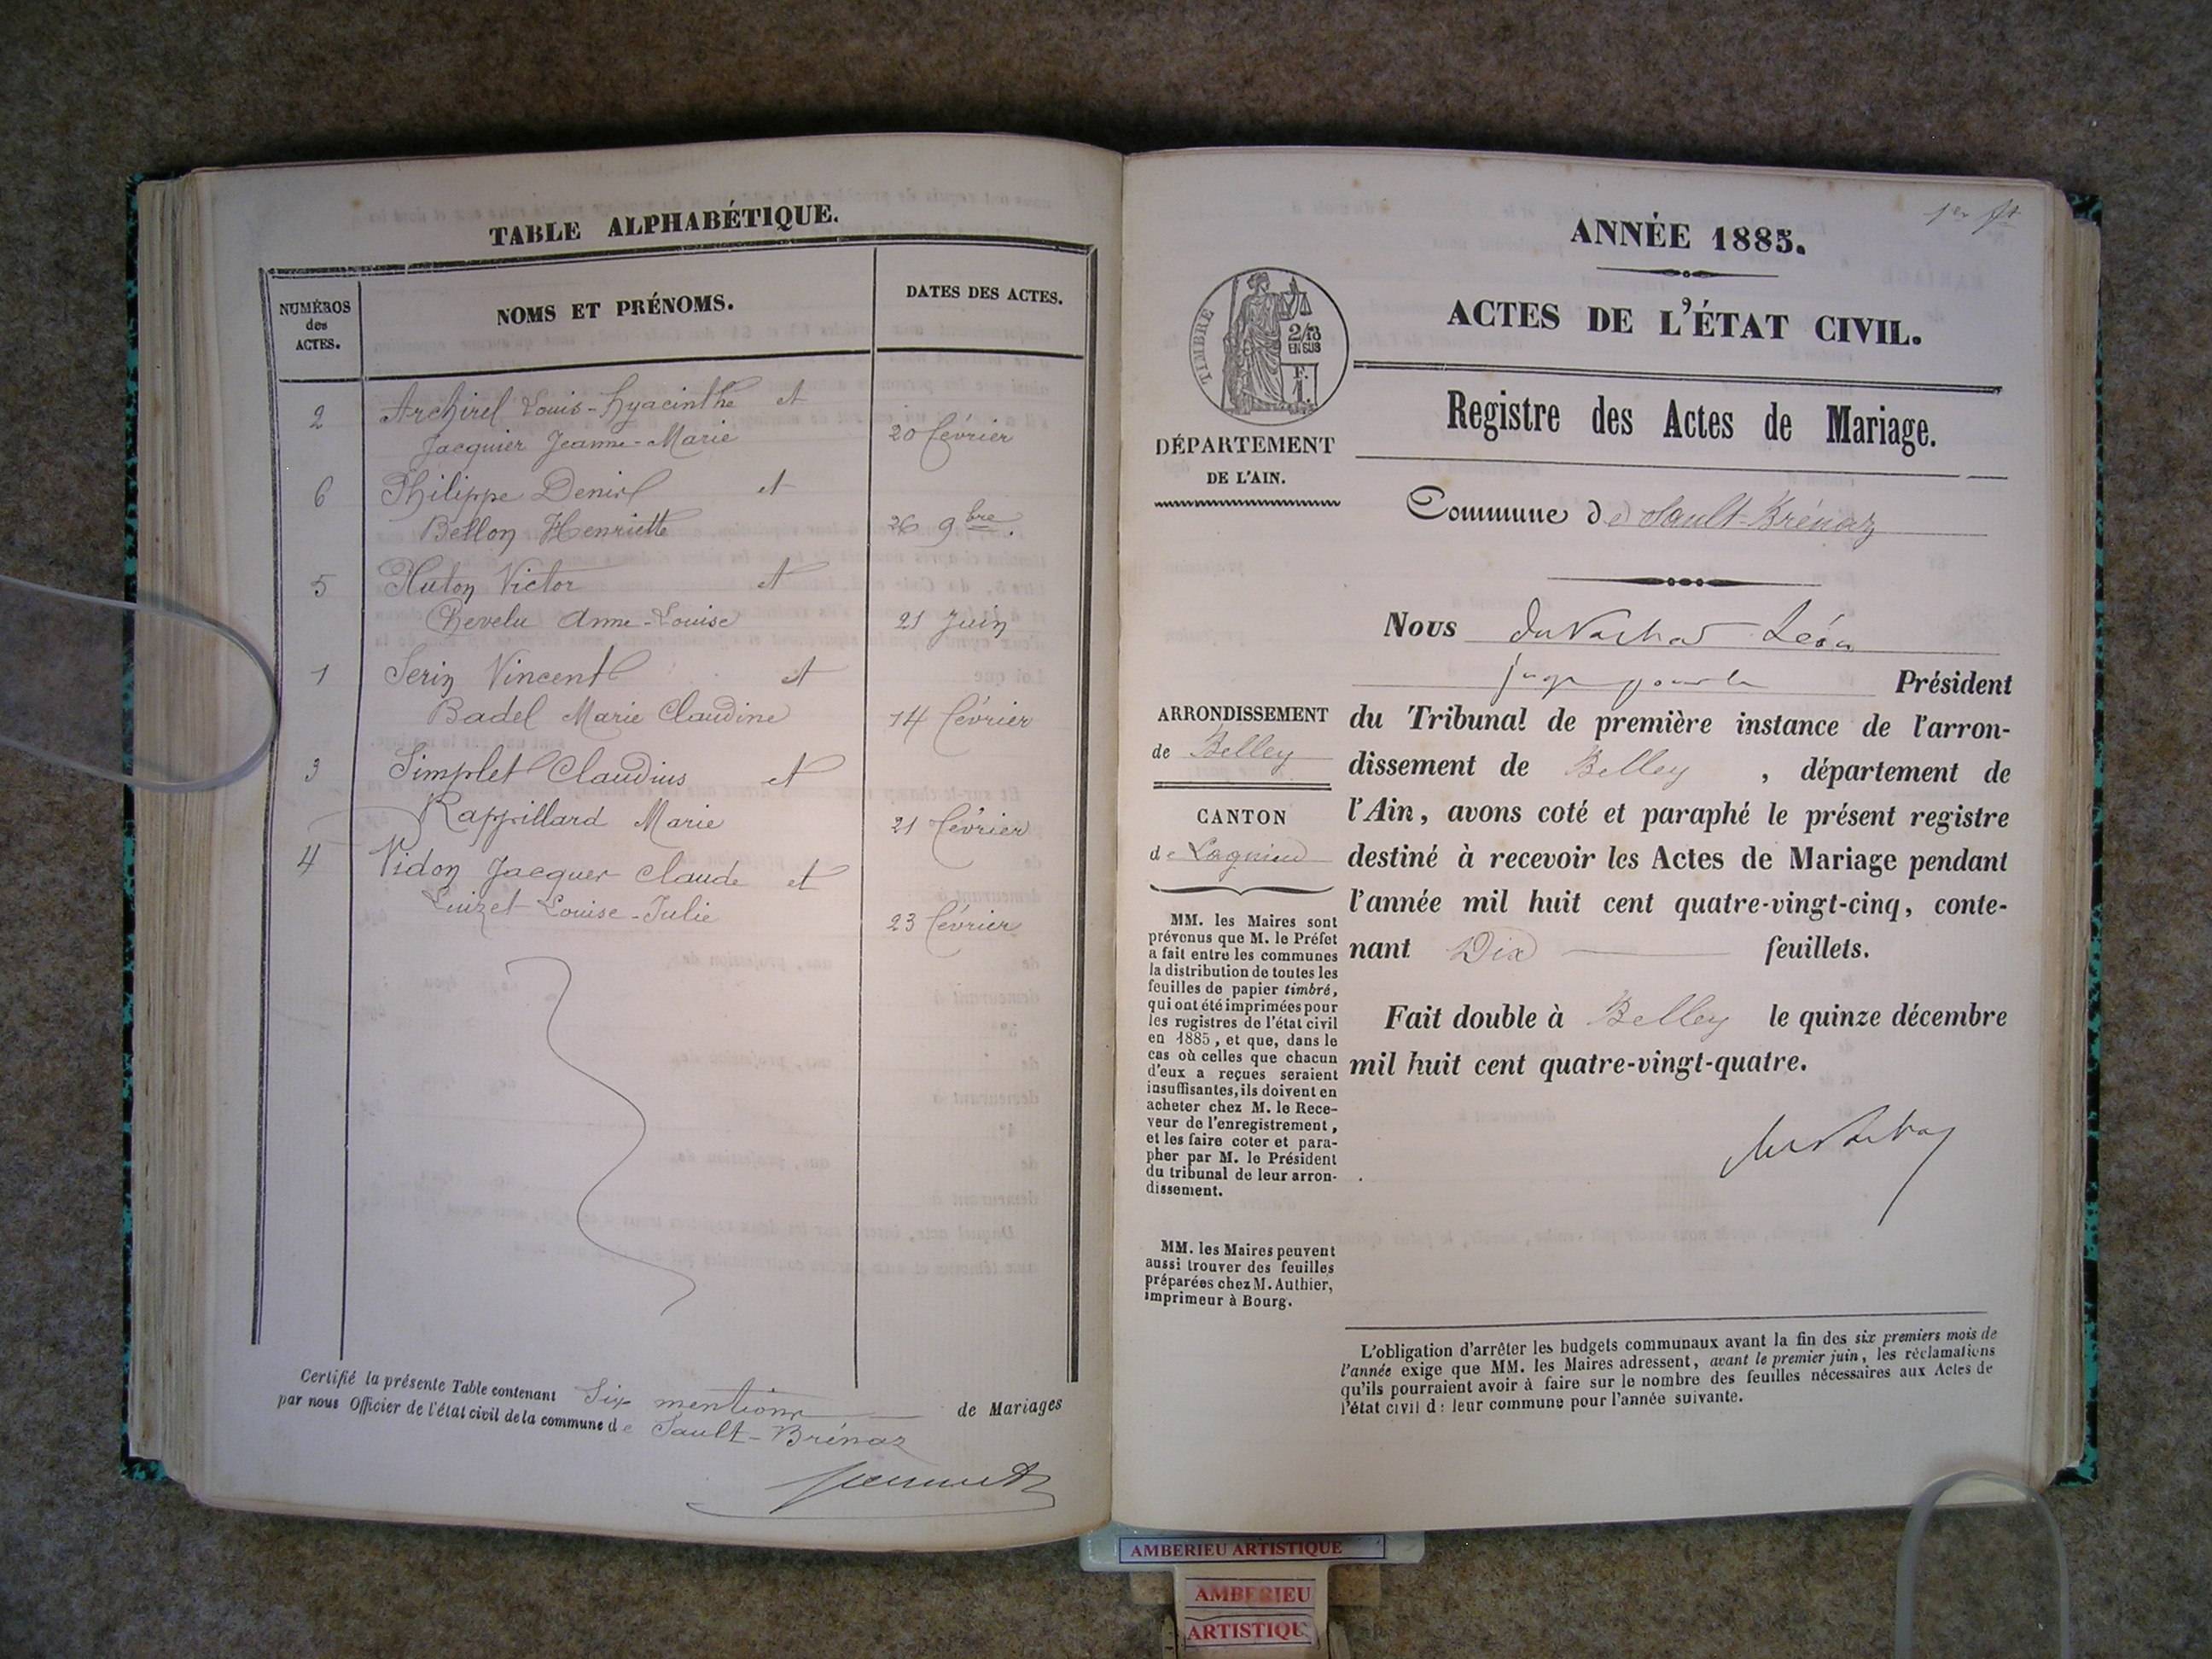 TABLE ALPHABÉTIQUE.
NUMÉROS
des
ACTES.
NOMS ET PRÉNOMS.
DATES DES ACTES.
2 Archirel Louis-Hyacinthe et
Jacquier Jeanne-Marie 20 février
6 Philippe Denis et
Bellon Henriette 26 9bre.
5 Pluton Victor et
Chevelu Anne-Louise 21 Juin
1 Serin Vincent et
Badel Marie Claudine 14 février
3 Simplet Claudius et
Rappillard Marie 21 février
4 Vidon Jacques Claude et
Luizet Louise-Julie 23 février
Certifié la présente Table contenant Six mentions de Mariages
par nous Officier de l'état civil de la commune de Sault-Brénaz
1er ft
ANNÉE 1885.
ACTES DE L'ÉTAT CIVIL.
Registre des Actes de Mariage.
TIMBRE
2/10
EN SUS
F.
1.
DÉPARTEMENT
DE L'AIN.
Commune de Sault-Brénaz
Nous Léon
juge pour le Président
du Tribunal de première instance de l'arron-
dissement de Belley, département de
l'Ain, avons coté et paraphé le présent registre
destiné à recevoir les Actes de Mariage pendant
l'année mil huit cent quatre-vingt-cinq, conte-
nant Dix feuillets.
Fait double à Belley le quinze décembre
mil huit cent quatre-vingt-quatre.
ARRONDISSEMENT
de Belley
CANTON
de Lagnieu
MM. les Maires sont
prévenus que M. le Préfet
a fait entre les communes
la distribution de toutes les
feuilles de papier timbré,
qui ont été imprimées pour
les registres de l'état civil
en 1885, et que, dans le
cas où celles que chacun
d'eux a reçues seraient
insuffisantes, ils doivent en
acheter chez M. le Rece-
veur de l'enregistrement,
et les faire coter et para-
pher par M. le Président
du tribunal de leur arron-
dissement.
MM. les Maires peuvent
aussi trouver des feuilles
préparées chez M. Authier,
imprimeur à Bourg.
L'obligation d'arrêter les budgets communaux avant la fin des six premiers mois de
l'année exige que MM. les Maires adressent, avant le premier juin, les réclamations
qu'ils pourraient avoir à faire sur le nombre des feuilles nécessaires aux Actes de
l'état civil d: leur commune pour l'année suivante.
AMBERIEU ARTISTIQUE
AMBERIEU
ARTISTIQU